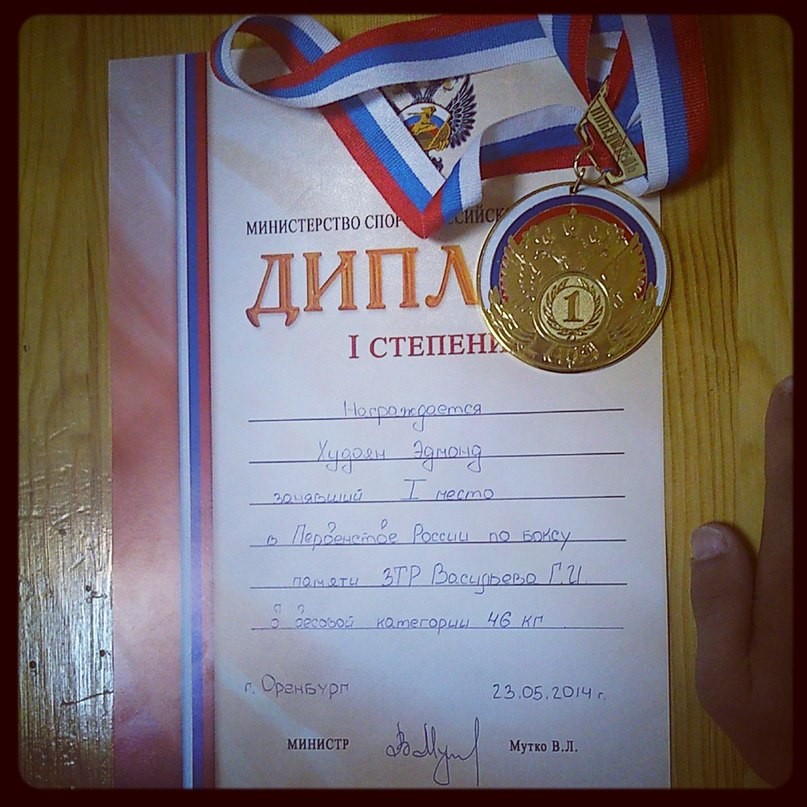 ПОБЕДИТЕЛЬ
МИНИСТЕРСТВО СПОР ССИЙСК
ДИПЛ
1
I СТЕПЕНИ
Награждается
Худоян Эдмонд
занявший I место
в Первенстве России по боксу
памяти ЗТР Васильева Г.И.
в весовой категории 46 кг
г. Оренбург 23.05.2014 г.
МИНИСТР Мутко В.Л.